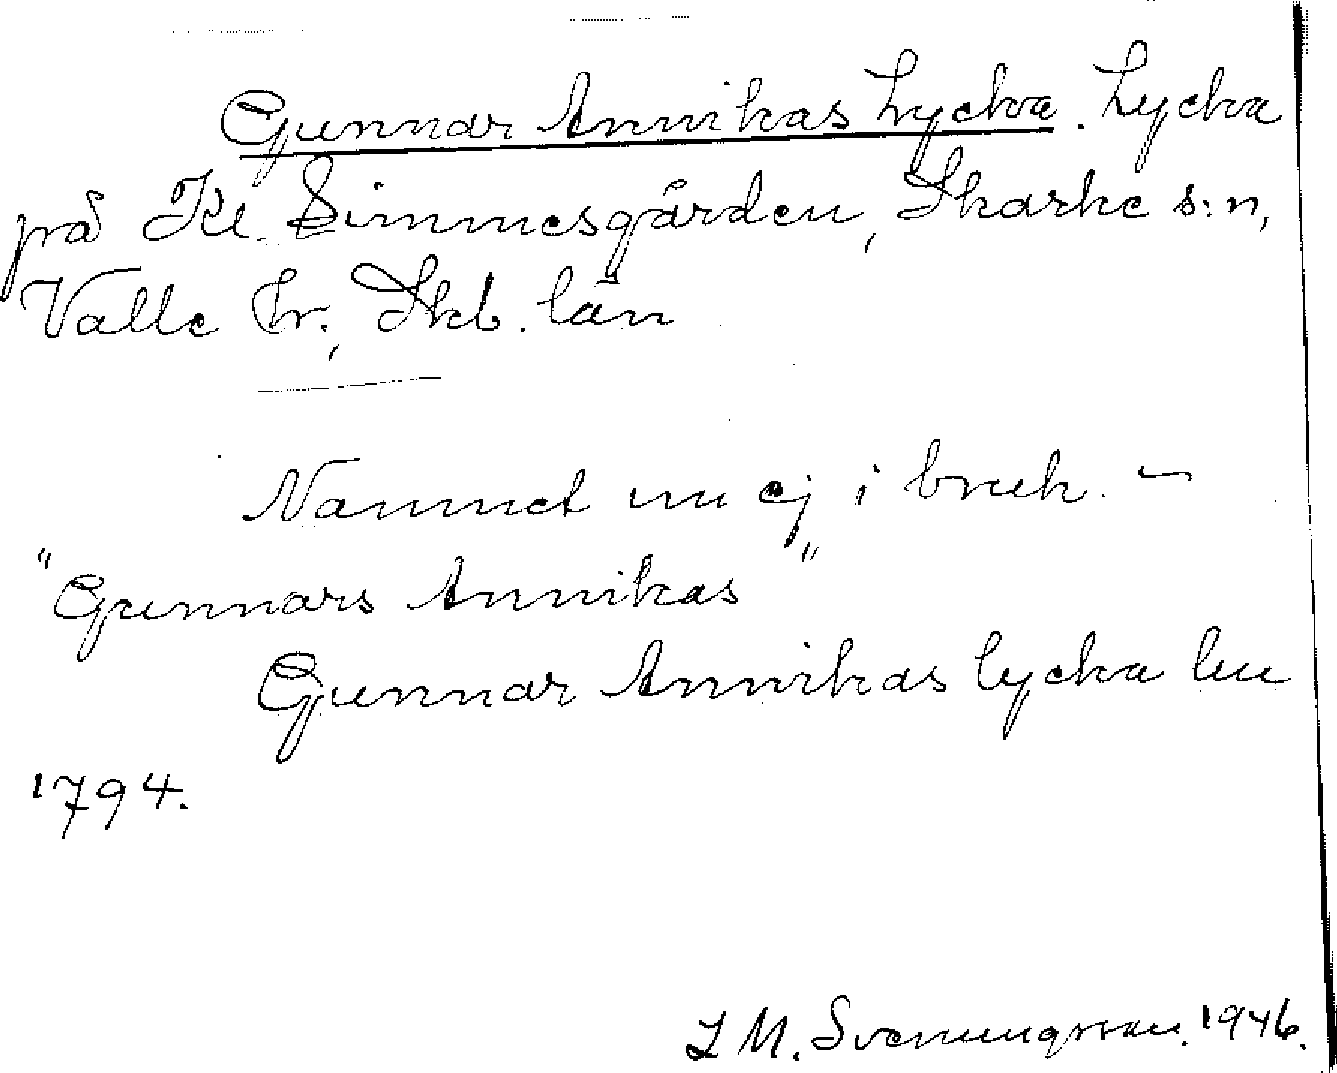 Gunnar Annikas Lycka. Lycka
på Kl. Simmesgården, Skarke s:n,
Valle hr., Skb. län
Namnet nu ej i bruk. –
"Gunnars Annikas"
Gunnar Annikas lycka lu
1794.
I M. Svenungsson. 1946.